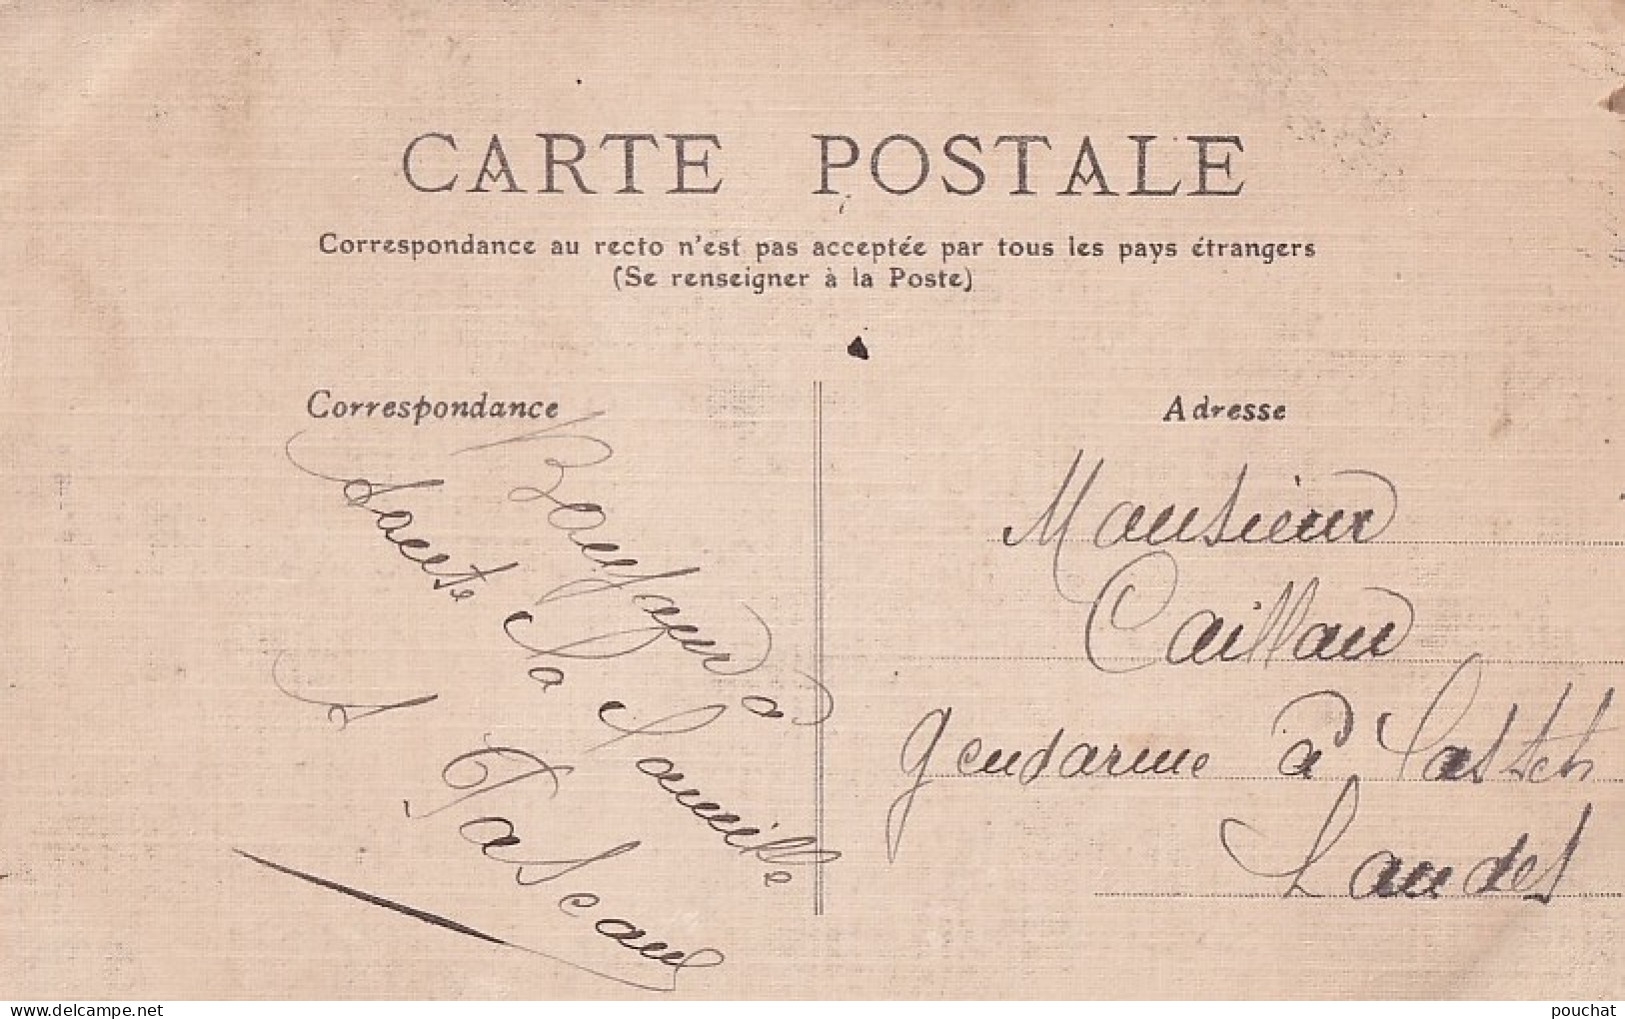 CARTE POSTALE
Correspondance au recto n'est pas acceptée par tous les pays étrangers
(Se renseigner à la Poste)
Correspondance
Bonjour à
toute la
famille
Adresse
Monsieur
Caillau
gendarme à
Landes
www.delcampe.net
pouchat